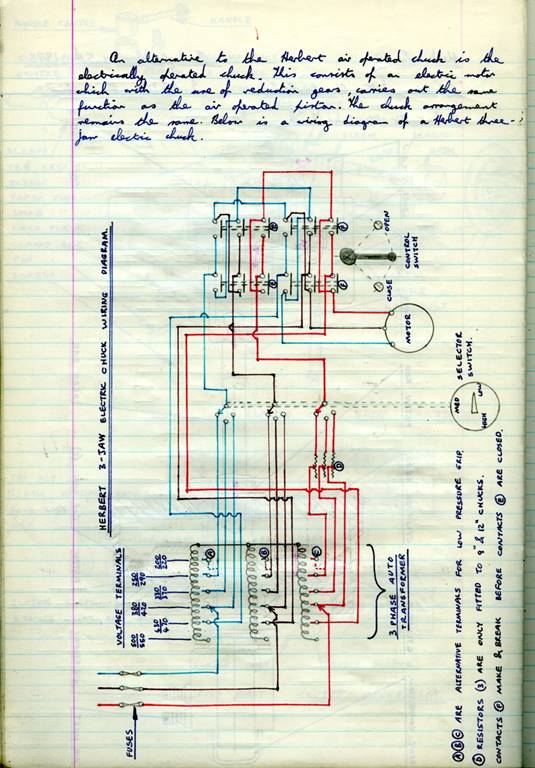 An alternative to the Herbert air operated chuck is the
electrically operated chuck. This consists of an electric motor
which with the use of reduction gears, carries out the same
function as the air operated piston. The chuck arrangement
remains the same. Below is a wiring diagram of a Herbert three-
jaw electric chuck.
HERBERT 3-JAW ELECTRIC CHUCK WIRING DIAGRAM.
OPEN
CONTROL
SWITCH
CLOSE
MOTOR
SELECTOR
SWITCH.
MED
LOW
HIGH
VOLTAGE TERMINALS
500
550
380
420
200
220
A
B
C
D
E
F
E
F
3 PHASE AUTO
TRANSFORMER
FUSES
A B C ARE ALTERNATIVE TERMINALS FOR LOW PRESSURE GRIP.
D RESISTORS (3) ARE ONLY FITTED TO 9" & 12" CHUCKS.
CONTACTS F MAKE & BREAK BEFORE CONTACTS E ARE CLOSED.